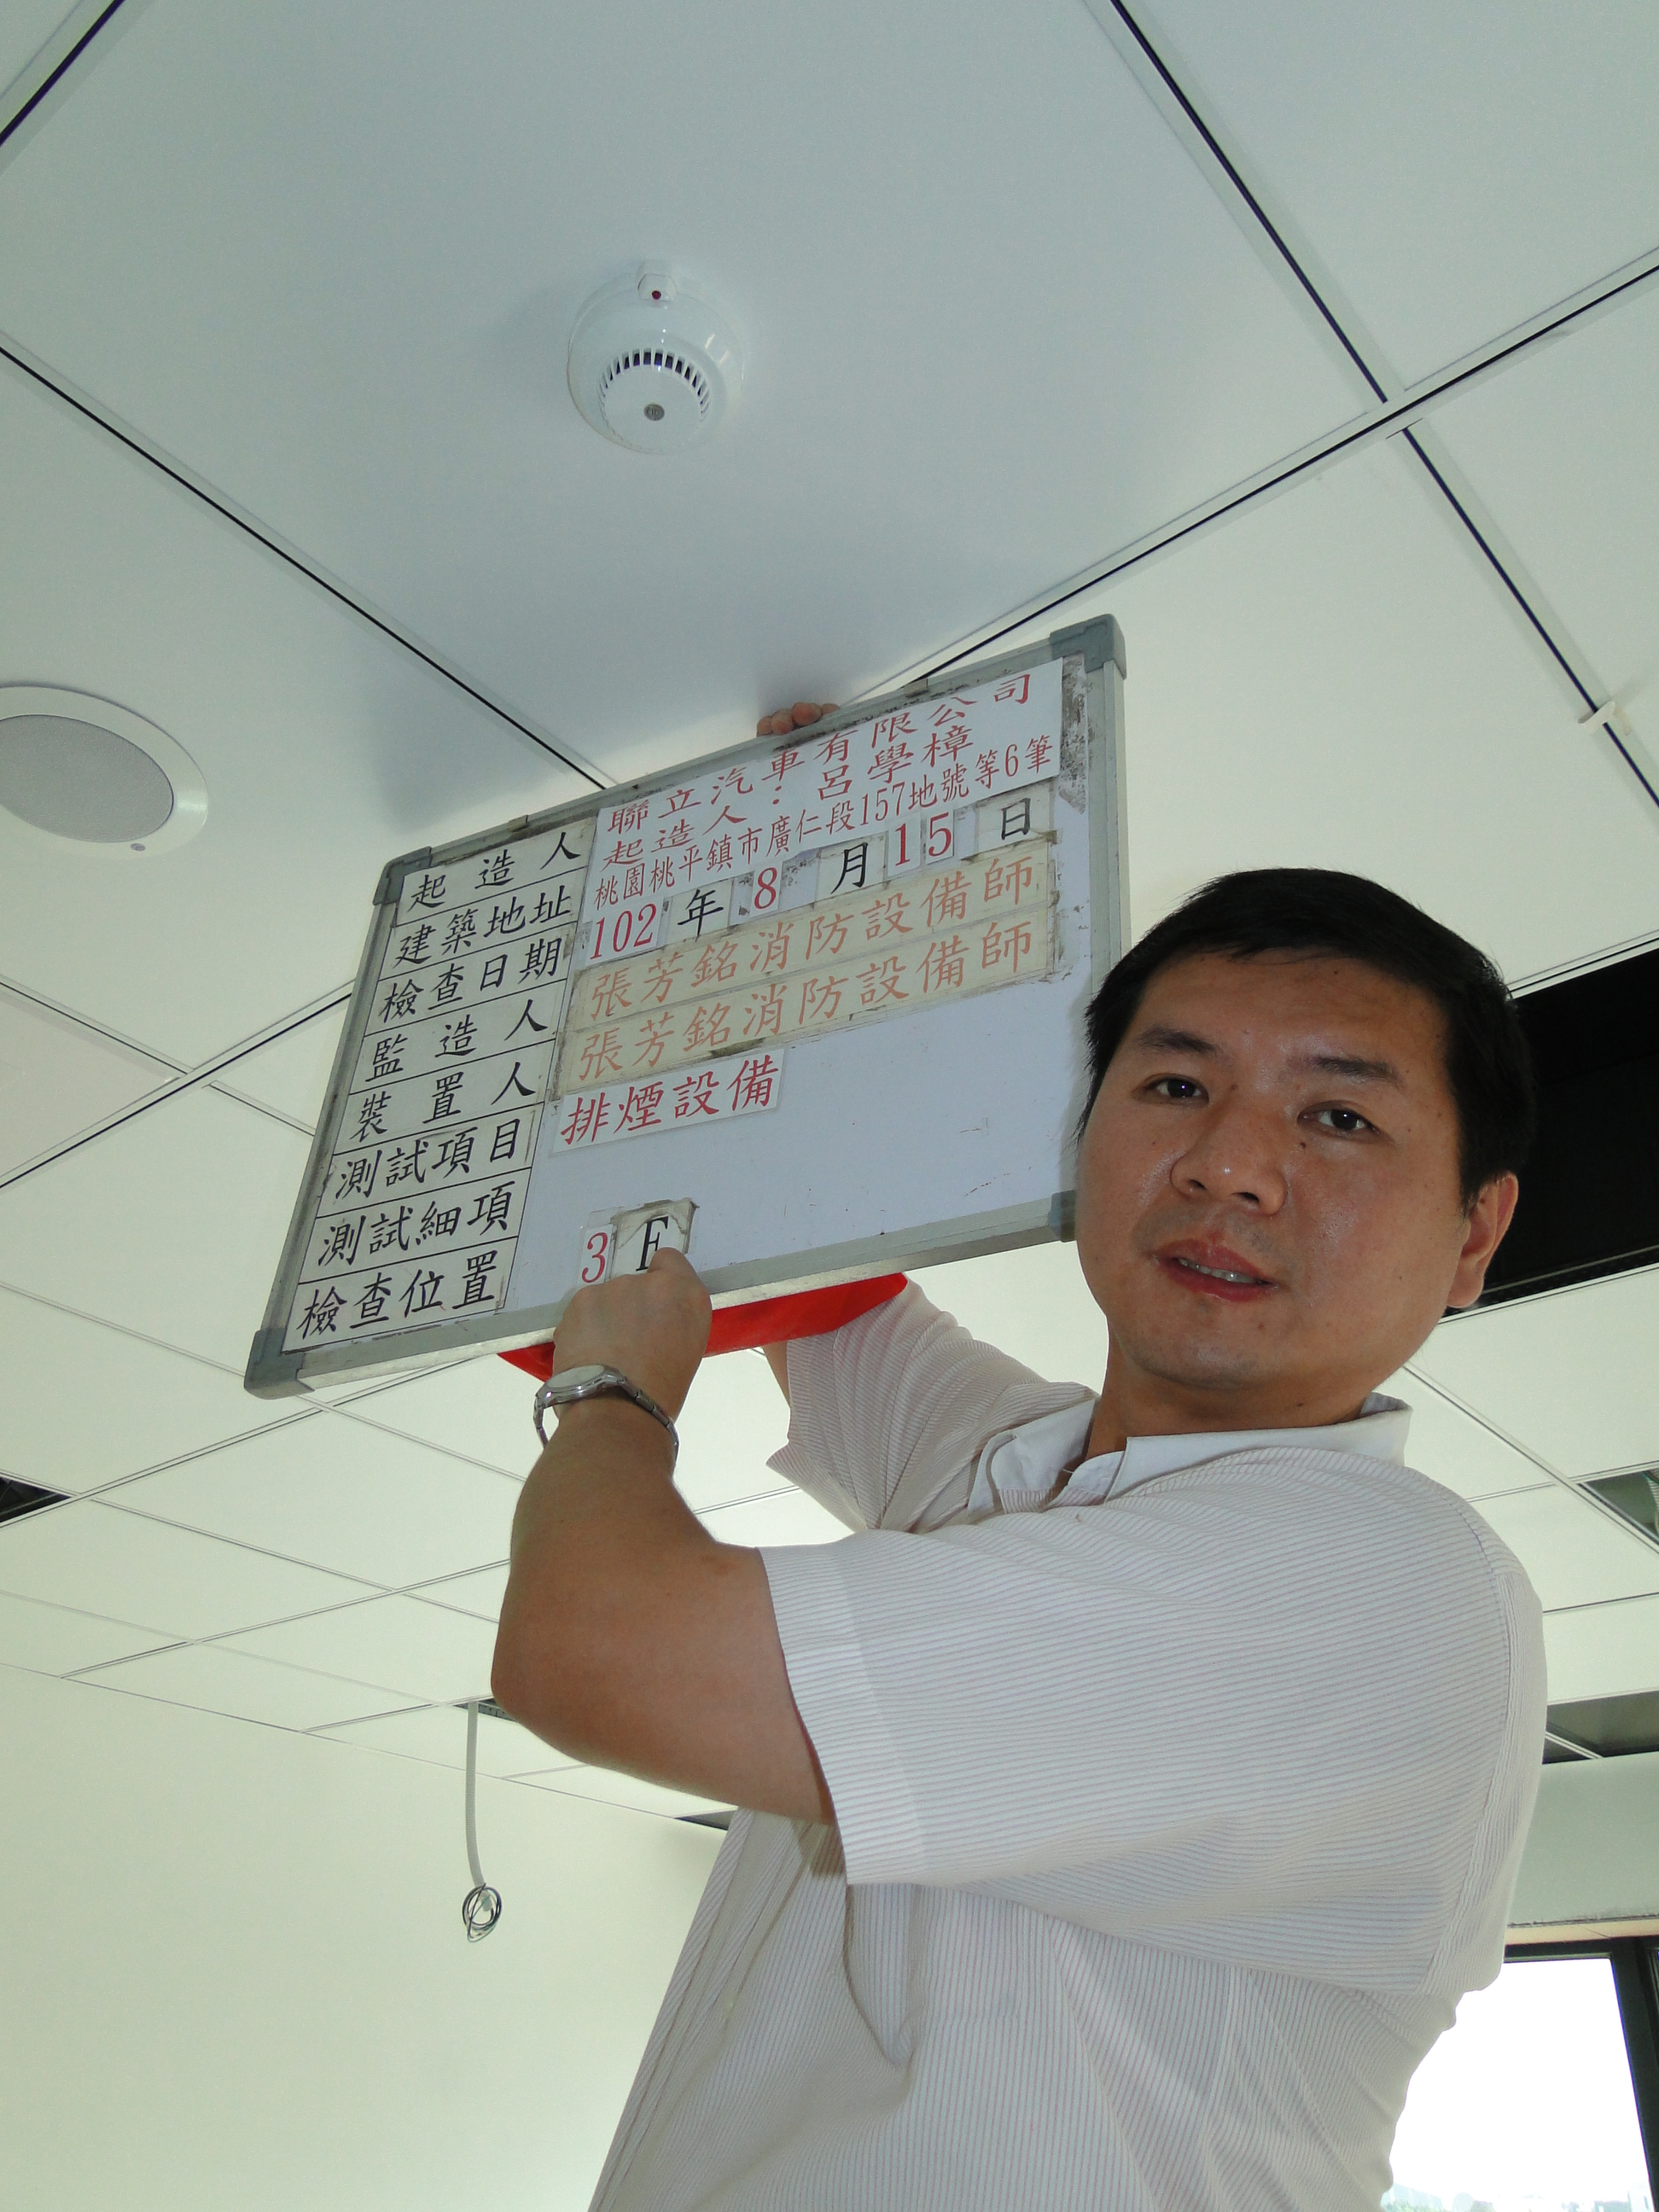 起造人 聯立汽車有限公司
起造人：呂學樟
建築地址 桃園桃平鎮市廣仁段157地號等6筆
檢查日期 102年8月15日
監造人 張芳銘消防設備師
裝置人 張芳銘消防設備師
測試項目 排煙設備
測試細項
檢查位置 3F